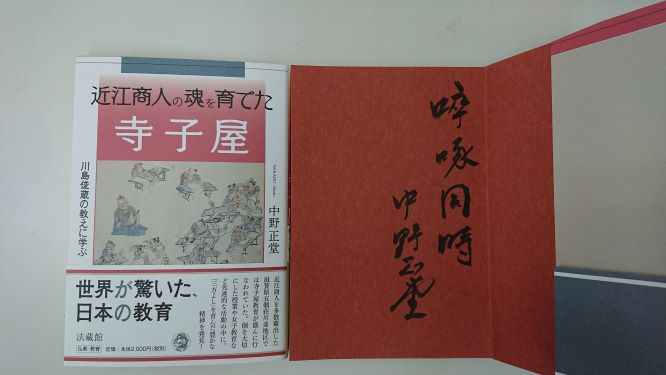 近江商人の魂を育てた
寺子屋
川島俊蔵の教えに学ぶ
中野正堂
世界が驚いた、
日本の教育
近江商人を多数輩出した
滋賀県五個荘川並地区で
は寺子屋教育が盛んに行
なわれていた。個を大切
にした授業や女子教育な
ど先進的な活動の中に、
「三方よし」を育んだ豊かな
精神を発見！
法藏館
仏教・教育
定価：本体2,000円（税別）
啐啄同時
中野正堂